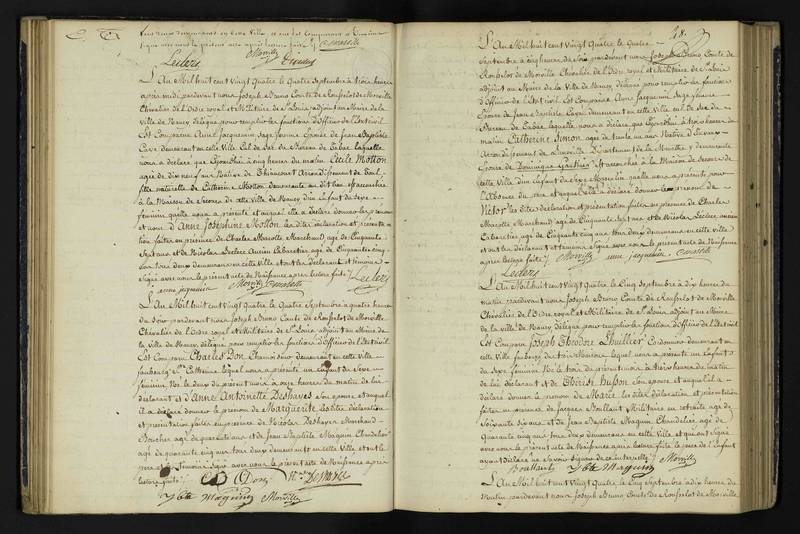 tous deux demeurant en cette Ville et ont les comparants et témoins
signé avec nous le présent acte après lecture faite
Morville Marotte
Leclerc
L'An Mil huit cent Vingt Quatre le Quatre Septembre à trois heures
après midi pardevant nous Joseph Bruno Comte de
Morville
Chevalier de l'Ordre royal et Militaire de St Louis, adjoint au Maire de la
Ville de Nancy délégué pour remplir les fonctions d'Officier de l'Etat civil
Est Comparue Anne Jacquemin Sage femme Epouse de Jean Baptiste
demeurant en cette Ville rue du Bureau de Tabac laquelle
nous a déclaré que cejourd'hui à cinq heures du matin Cecile Motton
agée de dix neuf ans Native de Thiaucourt Arrondissement de Toul
fille naturelle de Catherine Motton demeurante au dit lieu est accouchée
à la Maison de Secours de cette Ville de Nancy d'un Enfant du Sexe
féminin qu'elle nous a présenté et auquel elle a déclaré donner les prénoms
et nom d'Anne Josephine Motton les dites déclaration et présentation
faites en présence de Charles Marotte Marchand agé de Cinquante
Sept ans et de Nicolas Leclerc Ancien Cabaretier agé de Cinquante cinq
ans tous deux demeurant en cette Ville et ont les déclarant et témoins
signé avec nous le présent acte de Naissance après lecture faite
Leclerc
anne jacquemin Morville Marotte
L'An Mil huit cent Vingt Quatre le Quatre Septembre à quatre heures
du Soir pardevant nous Joseph Bruno Comte de
de Morville
Chevalier de l'Ordre royal et Militaire de St Louis adjoint au Maire de
la Ville de Nancy, délégué pour remplir les fonctions d'Officier de l'Etat civil
Est Comparu Charles Don demeurant en cette Ville
faubourg Ste Catherine lequel nous a présenté un Enfant du Sexe
féminin Né le deux du présent mois à onze heures du matin de lui
déclarant et d'Anne Antoinette Deshayes son épouse et auquel
il a déclaré donner le prénom de Marguerite les dites déclaration
et présentation faites en présence de Nicolas Deshayes Marchand
Boucher agé de quarante ans et de Jean Baptiste Maguin Chandelier
agé de quarante cinq ans tous deux demeurant en cette Ville et ont le
père et témoins signé avec nous le présent acte de Naissance après
lecture faite
Don
Jbte Maguin Morville
48.
L'An Mil huit cent Vingt Quatre le Quatre
Septembre à cinq heures du Soir pardevant nous Joseph Bruno Comte de
de Morville Chevalier de l'Ordre royal et Militaire de St Louis
adjoint au Maire de la Ville de Nancy délégué pour remplir les fonctions
d'Officier de l'Etat civil Est Comparue Anne Jacquemin Sage femme
Epouse de Jean Baptiste demeurant en cette Ville rue du
Bureau de Tabac laquelle nous a déclaré que cejourd'hui à trois heures du
matin Catherine Simon agée de trente un ans Native de
Arrondissement de Lunéville Département de la Meurthe y demeurante
Epouse de Dominique est accouchée à la Maison de Secours de
cette Ville d'un Enfant du Sexe Masculin qu'elle nous a présenté, pour
l'absence du père et auquel elle a déclaré donner le prénom de
les dites déclaration et présentation faites en présence de Charles
Marotte Marchand agé de Cinquante Sept ans et de Nicolas Leclerc ancien
Cabaretier agé de Cinquante cinq ans tous deux demeurant en cette Ville
et ont les déclarant et témoins signé avec nous le présent acte de Naissance
après lecture faite
Morville anne jacquemin Marotte
Leclerc
L'An Mil huit cent Vingt Quatre le Cinq Septembre à dix heures du
matin pardevant nous Joseph Bruno Comte de
de Morville
Chevalier de l'Ordre royal et Militaire de St Louis, adjoint au Maire
de la Ville de Nancy délégué pour remplir les fonctions d'Officier de l'Etat civil
Est Comparu Joseph Théodore Lhuillier Cordonnier demeurant en
cette Ville faubourg des trois Maisons lequel nous a présenté un Enfant
du Sexe féminin Né le trois du présent mois à trois heures du matin
de lui déclarant et de Thérèse Husson son épouse et auquel il a
déclaré donner le prénom de Marie les dites déclaration et présentation
faites en présence de Jacques Boullaut Militaire en retraite agé de
Soixante dix ans et de Jean Baptiste Maguin Chandelier agé de
Quarante cinq ans tous deux demeurant en cette Ville et qui ont signé
avec nous le présent acte de Naissance après lecture faite le père de l'Enfant
ayant déclaré ne Savoir signer de ce interpellé
Morville
Jbte Maguin
L'An Mil huit cent Vingt Quatre le Cinq Septembre à dix heures du
Matin, pardevant nous Joseph Bruno Comte de
de Morville